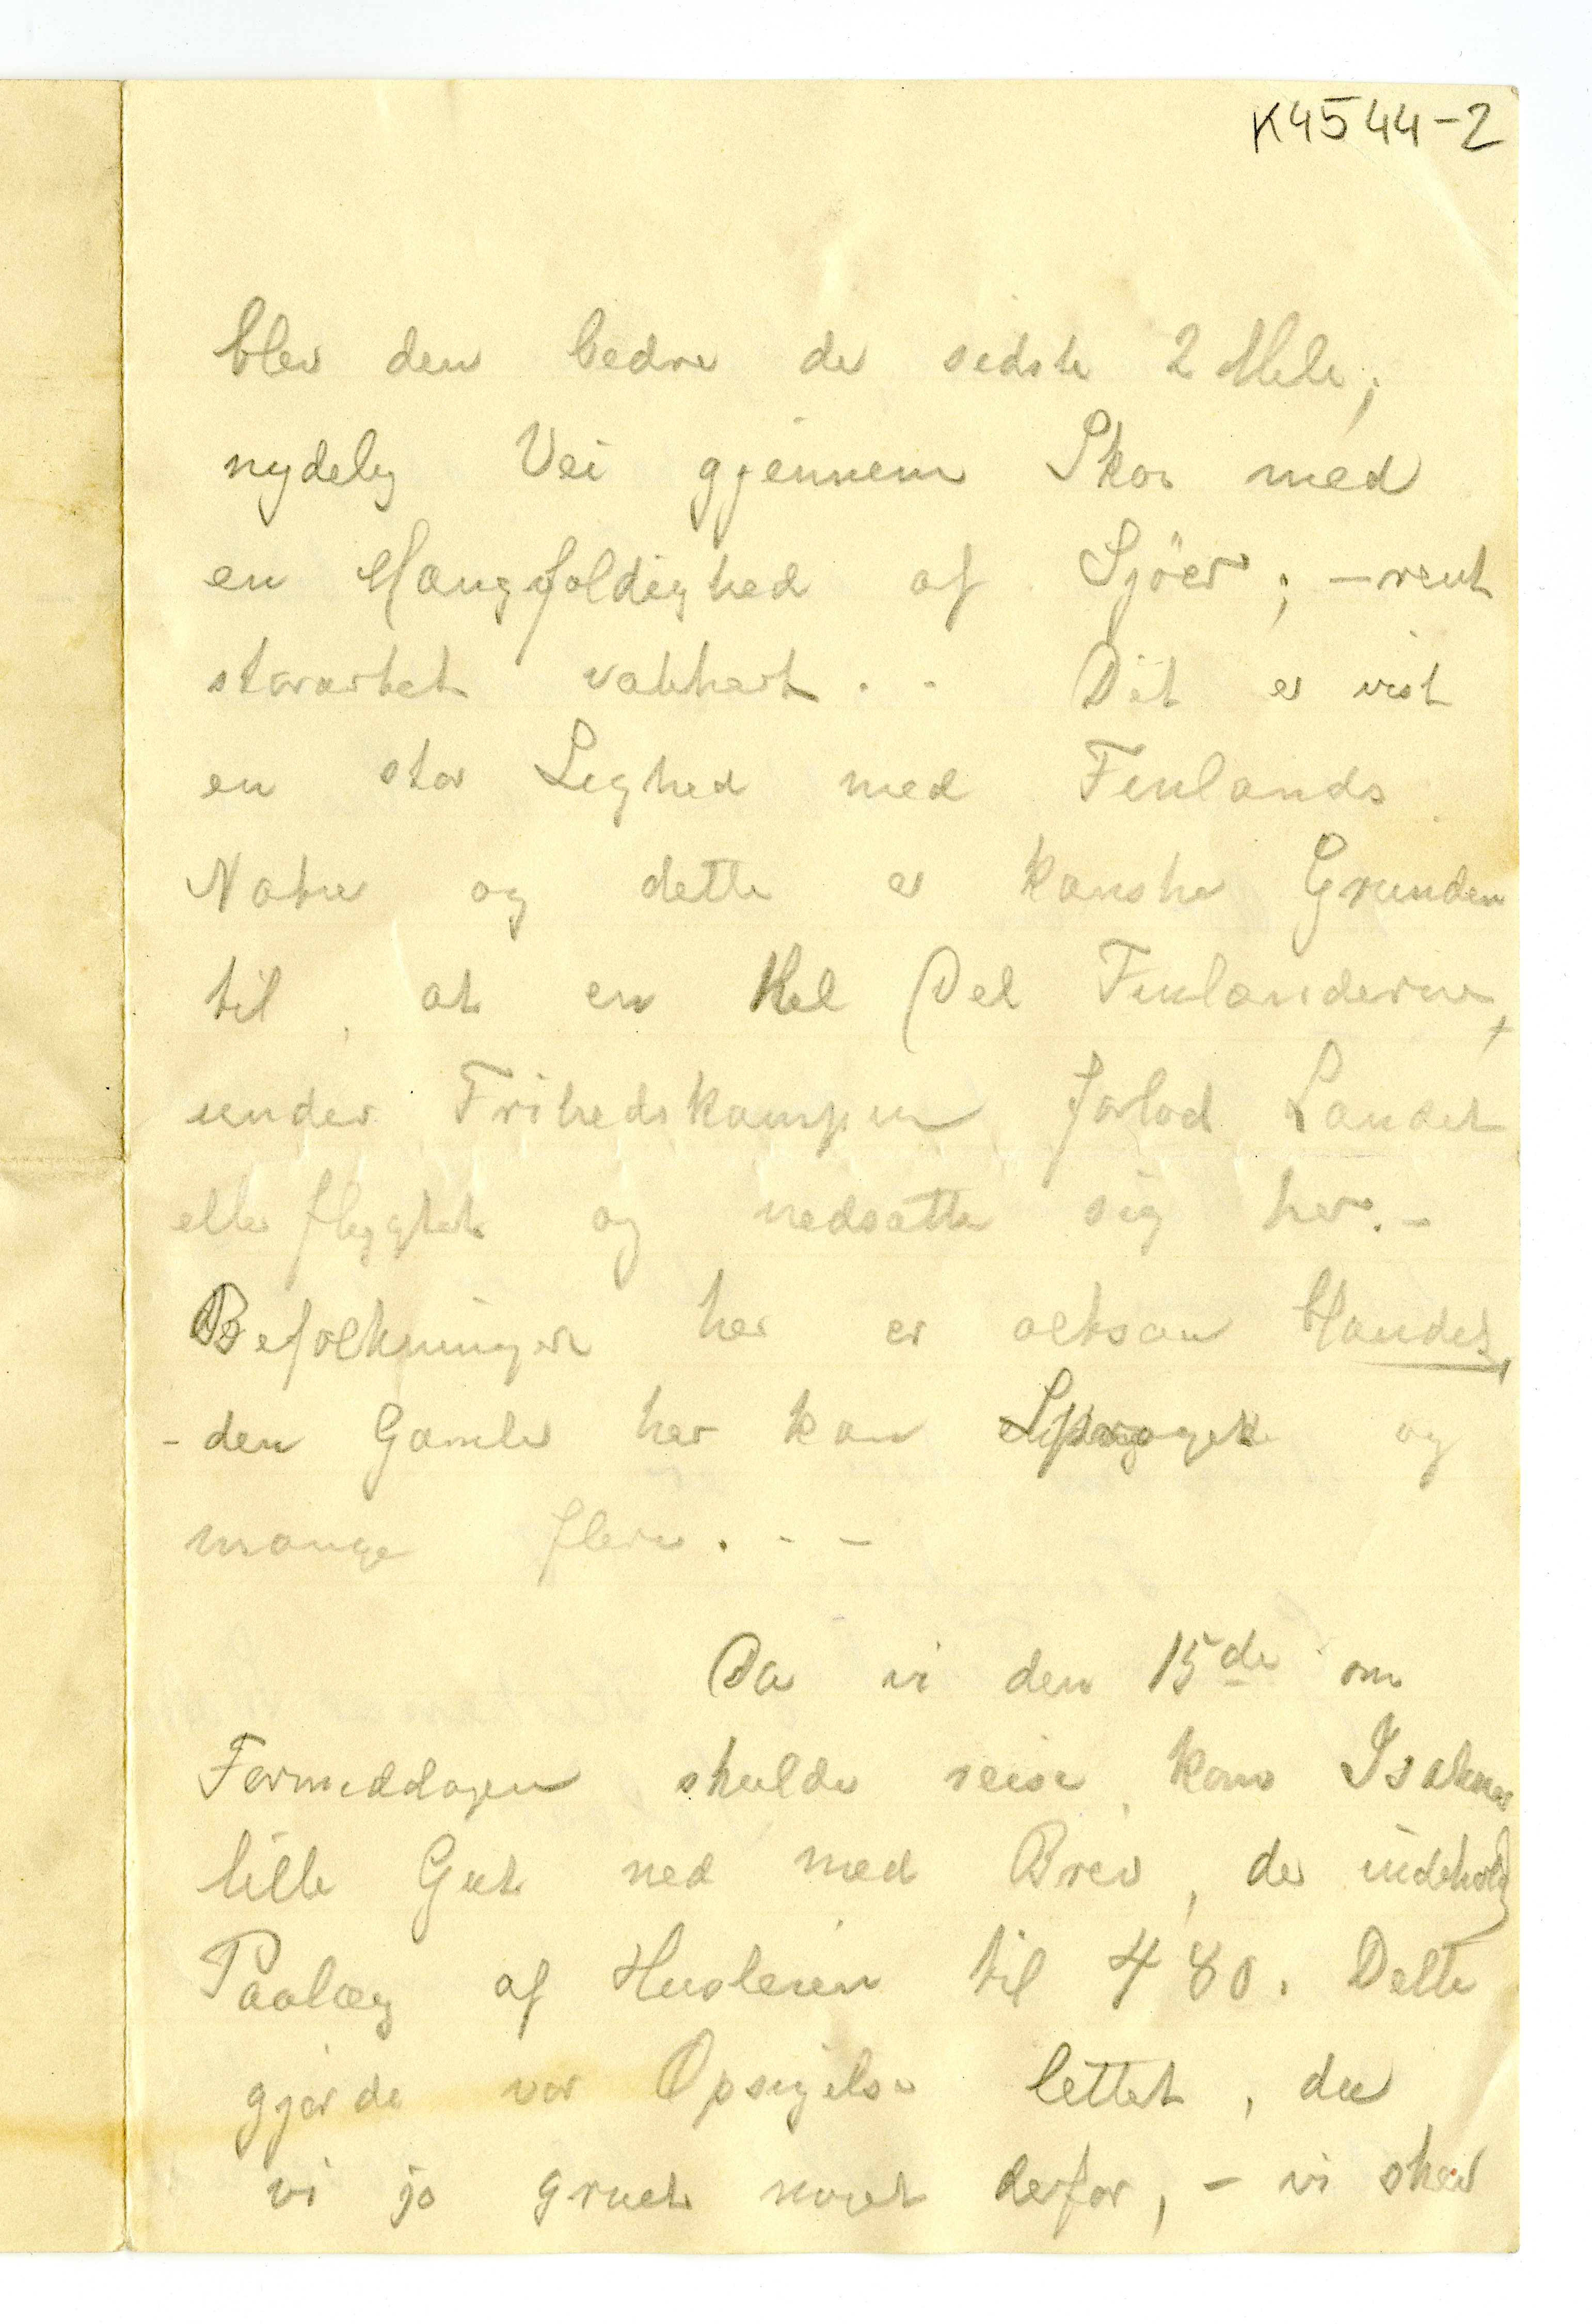 K4544-2
blev den bedre de sidste 2 Mile;
nydelig Vei gjennem Skov med
en Mangfoldighed af Sjöer; - rent
storartet vakkert. - Det er vist
en stor Lighed med Finlands
Natur og dette er kanske Grunden
til, at en Hel Del Finlænderne,
under Frihedskampen forlod Landet
eller flygtet og nedsatte sig her. -
Befolkningen her er altsaa blandet,
- den Gamle her kan Sproget og
mange flere. - -
Da vi den 15de om
Formeddagen skulde reise, kom
lille Gut ned med Brev, der indeholdt
Paalæg af Husleien til 480. Dette
gjorde vor Opsigelse lettet, da
vi jo gruet noget derfor, - vi skrev